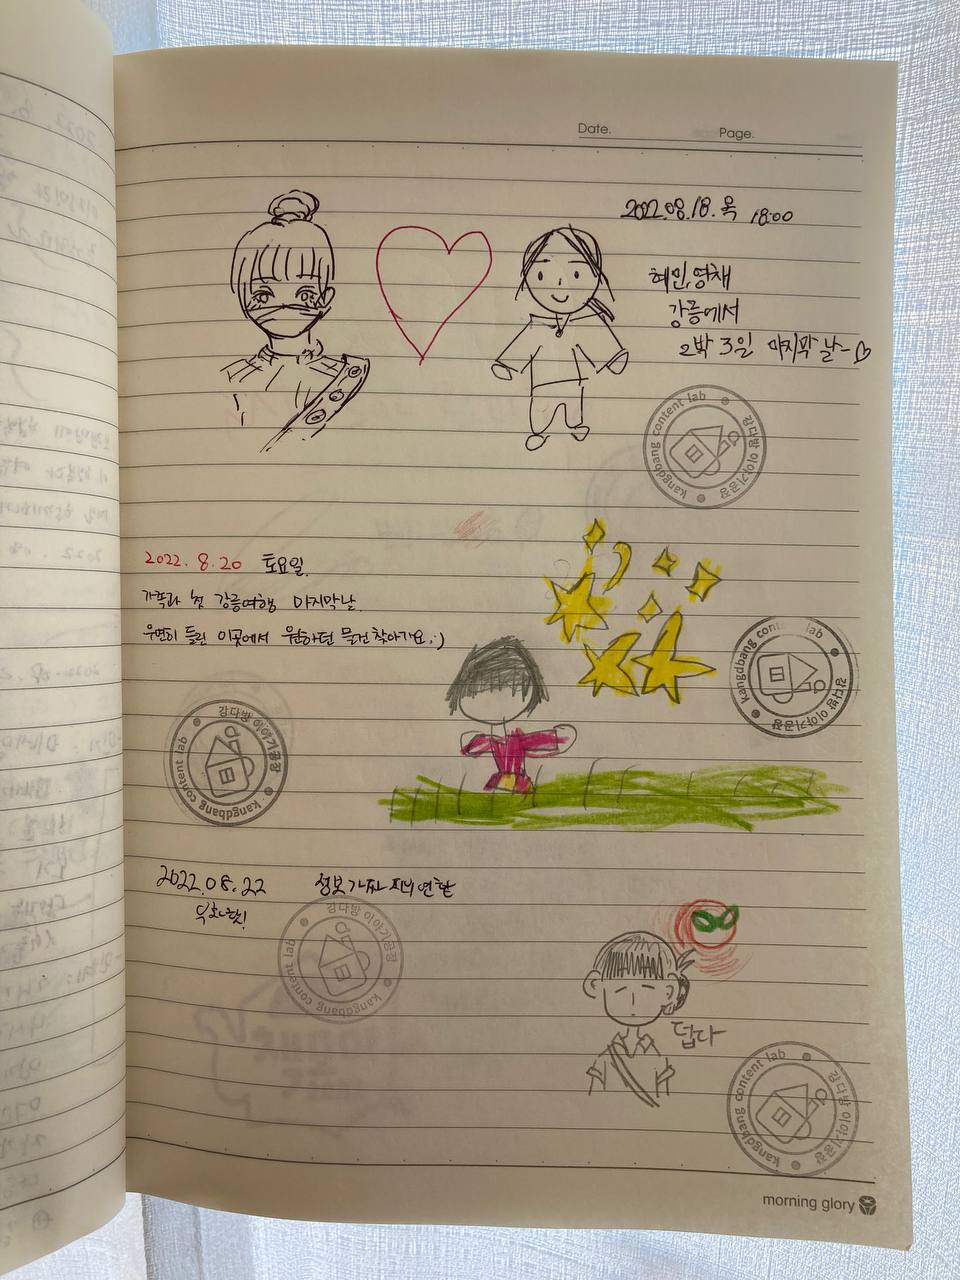 Date.
Page.
2022.08.18.목 18:00
혜민,영채
강릉에서
2박 3일 마지막 날~♡
kangdbang content lab
강다방 이야기공장
2022. 8. 20 토요일.
가족과 첫 강릉여행 마지막날.
우연히 들린 이곳에서 원하던 물건 찾아가요:)
kangdbang content lab
강다방 이야기공장
kangdbang content lab
강다방 이야기공장
2022.08.22
kangdbang content lab
강다방 이야기공장
덥다
kangdbang content lab
강다방 이야기공장
morning glory